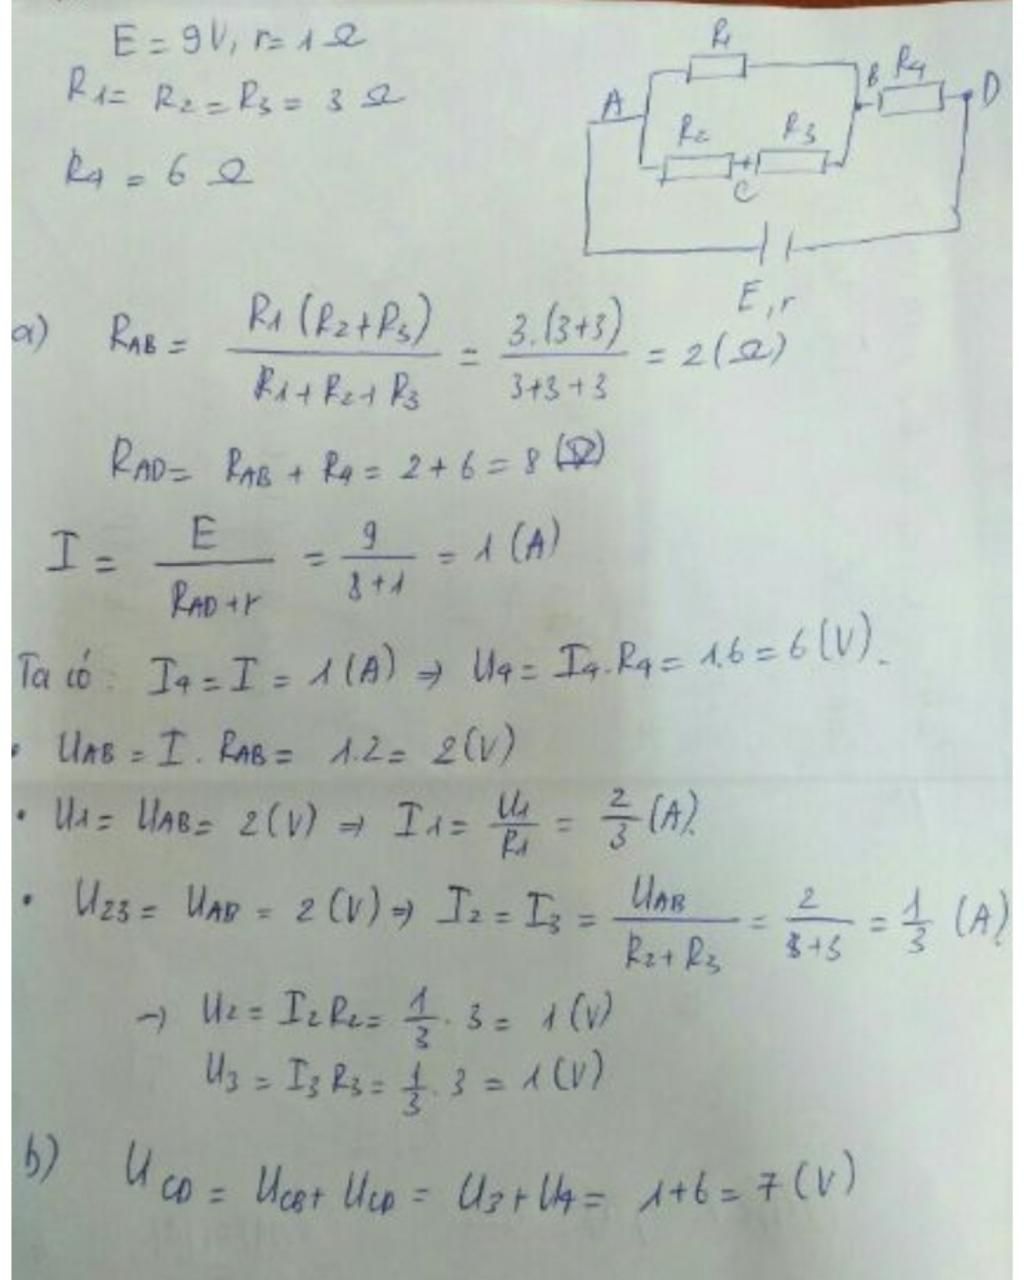 E = 9V, r = 1 Ω
R1 = R2 = R3 = 3 Ω
R4 = 6 Ω
R1
A
R2
R3
C
B
R4
D
E, r
a) RAB = R1 (R2+R3) / R1+R2+R3 = 3.(3+3) / 3+3+3 = 2 (Ω)
RAD = RAB + R4 = 2 + 6 = 8 (Ω)
I = E / RAD+r = 9 / 8+1 = 1 (A)
Ta có: I4 = I = 1 (A) → U4 = I4.R4 = 1.6 = 6 (V).
• UAB = I . RAB = 1.2 = 2 (V)
• U1 = UAB = 2 (V) ⇒ I1 = U1 / R1 = 2 / 3 (A).
• U23 = UAB = 2 (V) ⇒ I2 = I3 = UAB / R2+R3 = 2 / 3+3 = 1 / 3 (A)
→ U2 = I2R2 = 1/3 . 3 = 1 (V)
U3 = I3R3 = 1/3 . 3 = 1 (V)
b) UCD = UCB + UCD = U3 + U4 = 1+6 = 7 (V)